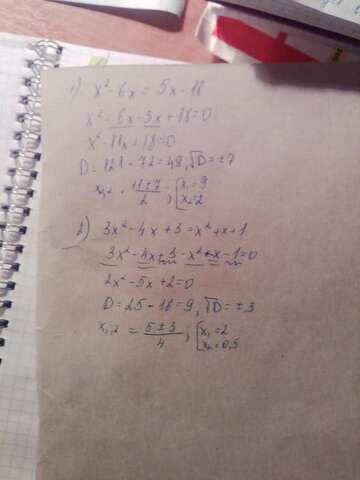 1) x² - 6x = 5x - 18
x² - 6x - 5x + 18 = 0
x² - 11x + 18 = 0
D = 121 - 72 = 49, √D = ±7
x₁,₂ = (11±7)/2 ; [x₁ = 9
x₂ = 2
2) 3x² - 4x + 3 = x² + x + 1
3x² - 4x + 3 - x² - x - 1 = 0
2x² - 5x + 2 = 0
D = 25 - 16 = 9, √D = ±3
x₁,₂ = (5±3)/4 ; [x₁ = 2
x₂ = 0,5